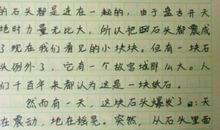 的石头都是连在一起的，由于盘古开天
地时力量无比大，所以把石头都震成
了现在我们看见的小块块。但有一块石
头例外了，它有一个故宫城那么大。人
们千百年来都认为这是一块铁石。
然而有一天，这块石头爆发了：天
在震动，地在摇晃。突然，从石头里面